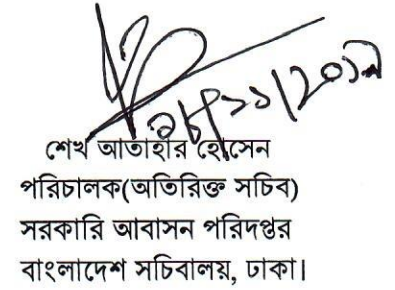 ২৮/১১/২০১৯
শেখ আতাহার হোসেন
পরিচালক(অতিরিক্ত সচিব)
সরকারি আবাসন পরিদপ্তর
বাংলাদেশ সচিবালয়, ঢাকা।